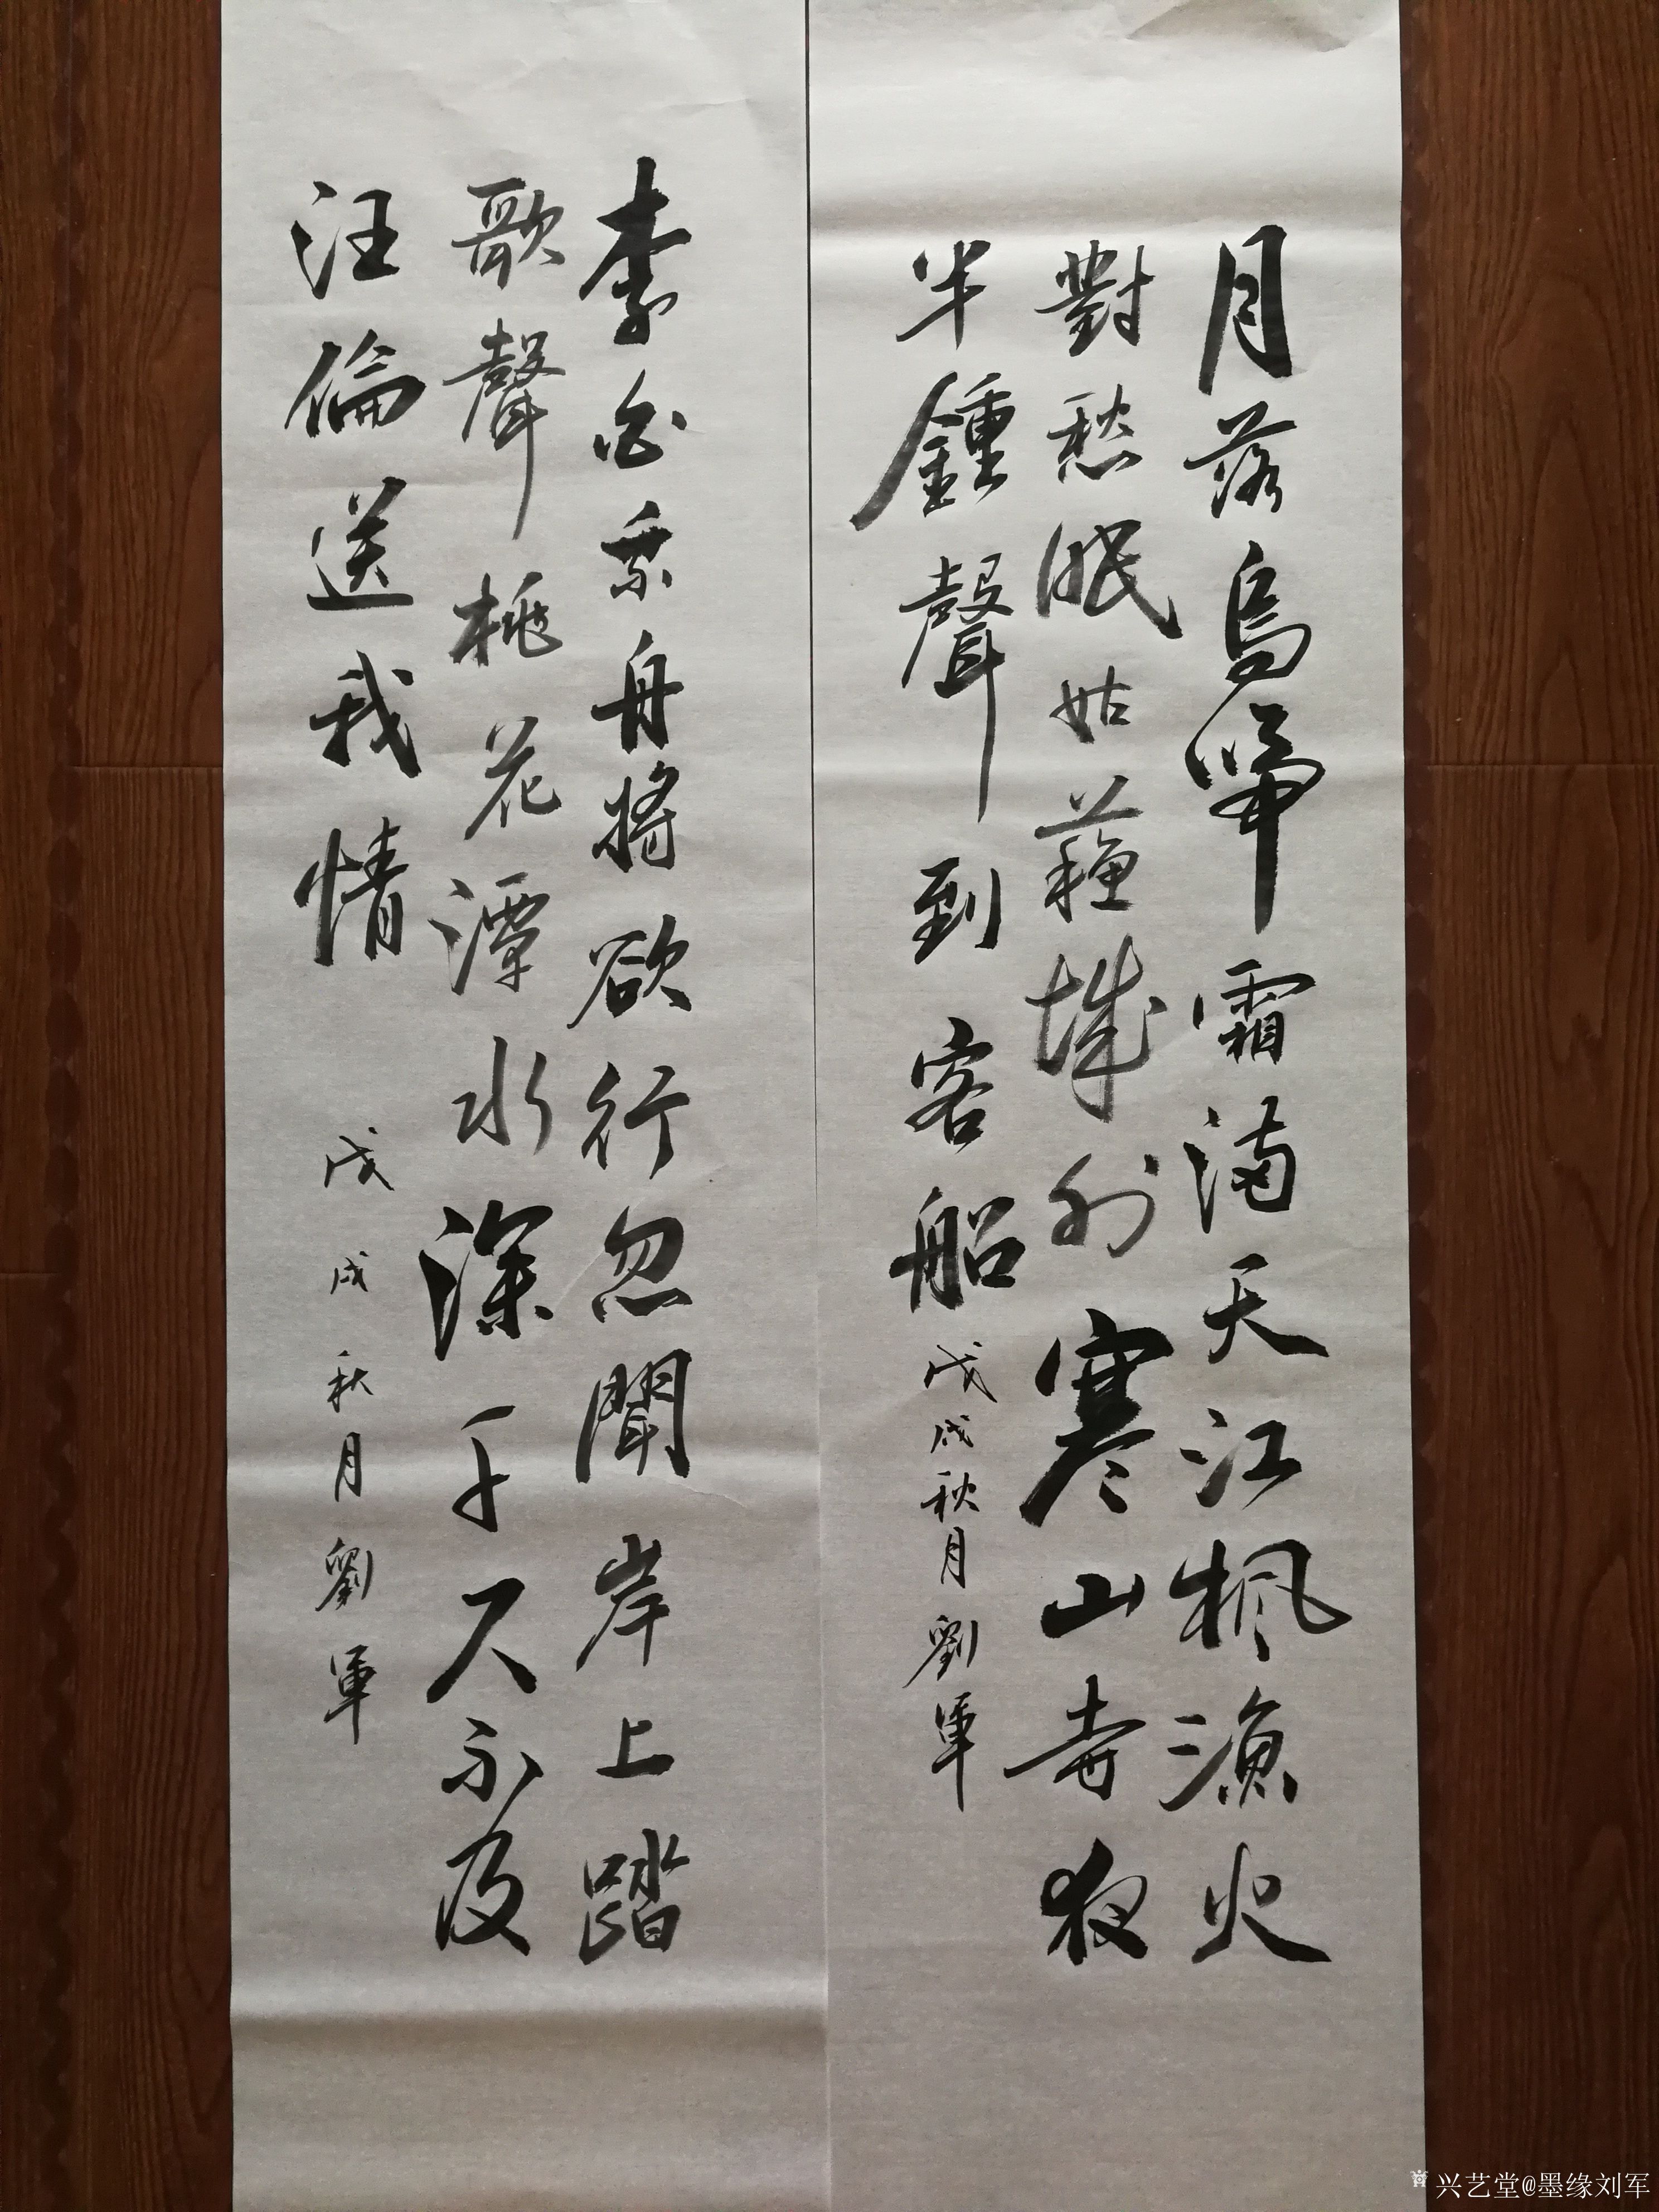 月落烏啼霜滿天江楓漁火
對愁眠姑蘇城外寒山寺夜
半鍾聲到客船
戊戌秋月劉軍
李白乘舟將欲行忽聞岸上踏
歌聲桃花潭水深千尺不及
汪倫送我情
戊戌秋月劉軍
兴艺堂@墨缘刘军